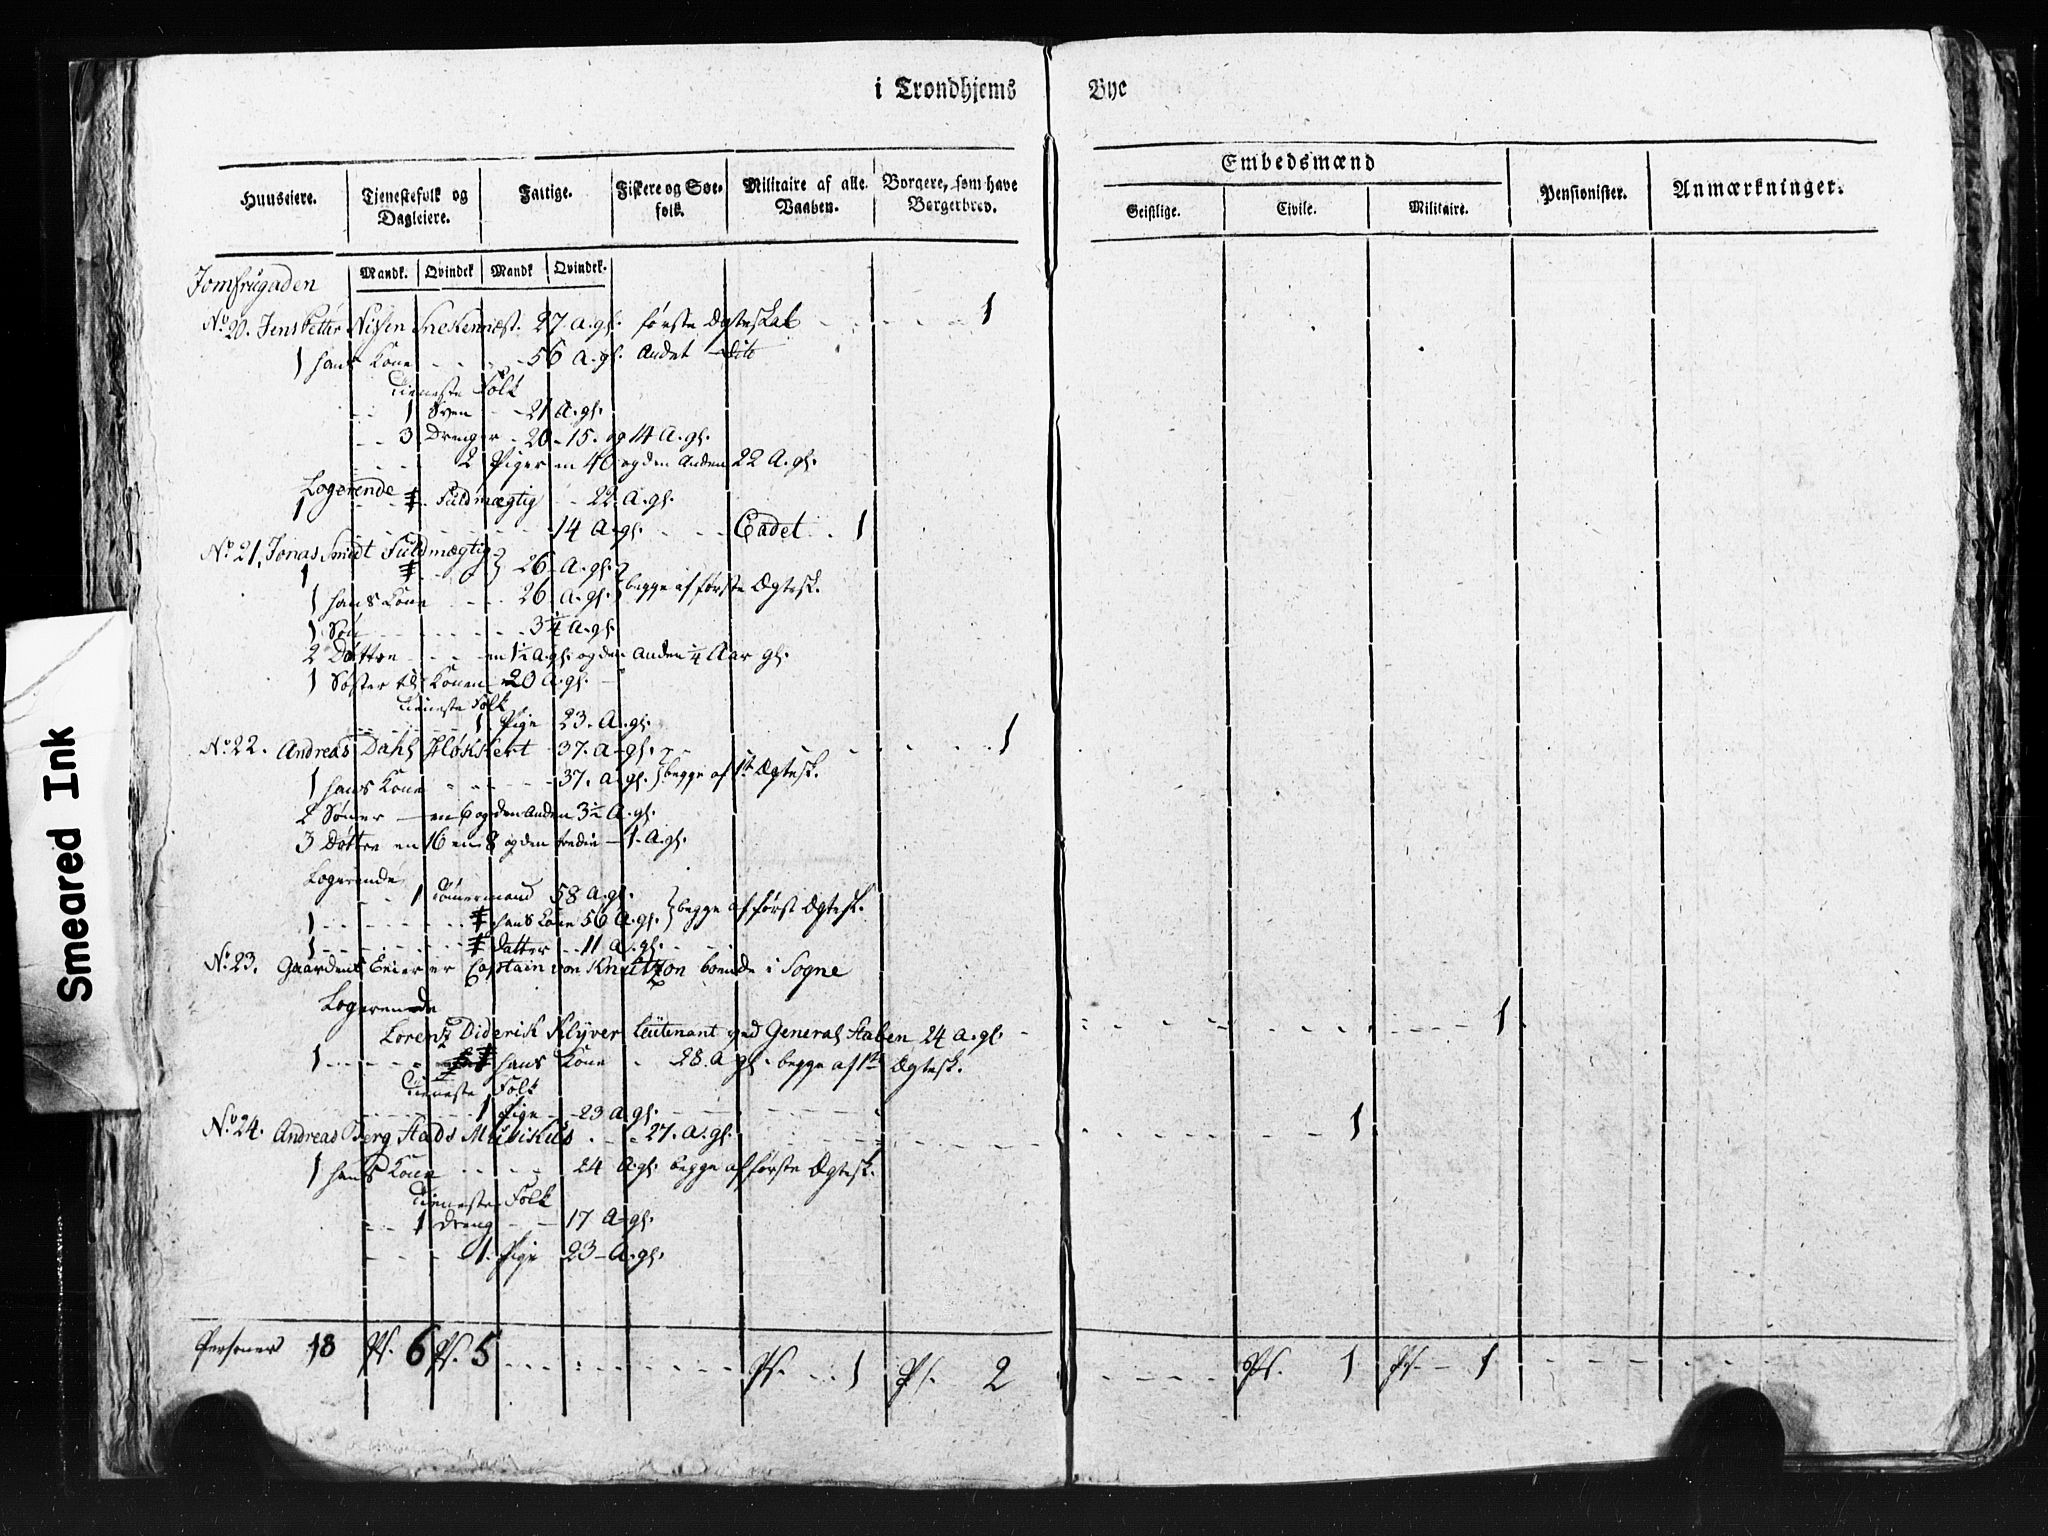 i Trondhjems Bye
Huuseiere. Tjenestefolk og Dagleiere. Fattige. Fiskere og Søefolk. Militaire af alle Vaaben. Borgere, som have Borgerbrev. Embedsmænd Pensionister. Anmærkninger.
Geistlige. Civile. Militaire.
Mandk. Qvindek Mandk Qvindek.
Jomfrugaden
No 20. Jens Petter Nissen Snekermest. 27 A. gl. første Ægteskab 1
1 hans Kone 56 A. gl. Andet dito
Tieneste Folk
1 Sven 21 A. gl.
3 Drenger 20 - 15. og 14 A. gl.
2 Piger en 40 og den Anden 22 A. gl.
Logerende
1 Fuldmægtig 22 A. gl.
14 A. gl. Cadet 1
No 21. Jonas Smidt Fuldmægtig 26 A. gl.
1
1 hans Kone 26 A. gl. begge af første Ægtesk.
1 Søn 3 1/4 A. gl.
2 Døttre en 1 1/2 A. gl. og den Anden 1/4 Aar gl.
1 Søster til Konen 20 A. gl.
Tieneste Folk
1 Pige 23 A. gl.
No 22. Andreas Dahl 37. A. gl. 1
1 hans Kone 37. A. gl. begge af 1ste Ægtesk.
2 Sønner en 6 og den Anden 3 1/2 A. gl.
3 Døttre en 16 en 8 og den tredie 1. A. gl.
Logerende
1 Tømermand 58 A. gl.
1 hans Kone 56 A. gl. begge af først Ægtesk.
1 Datter 11 A. gl.
No 23. Gaardens Eier er Captain von Knutzon boende i Sogne
Logerende
Lorentz Diderik Klÿver Leütenant ved General Staben 24 A. gl. 1
1 hans Kone 28. A gl. begge af 1ste Ægtesk.
Tieneste Folk
1 Pige 23 A gl.
No 24. Andreas Berg Stads Musikus 27. A. gl. 1
1 hans Kone 24 A. gl. begge af første Ægtesk.
Tieneste Folk
1 Dreng 17 A. gl.
1. Pige 23 A. gl.
Personer 18 Ps. 6 Ps. 5 Ps. 1 Ps. 2 Ps. 1 Ps. 1
Smeared Ink